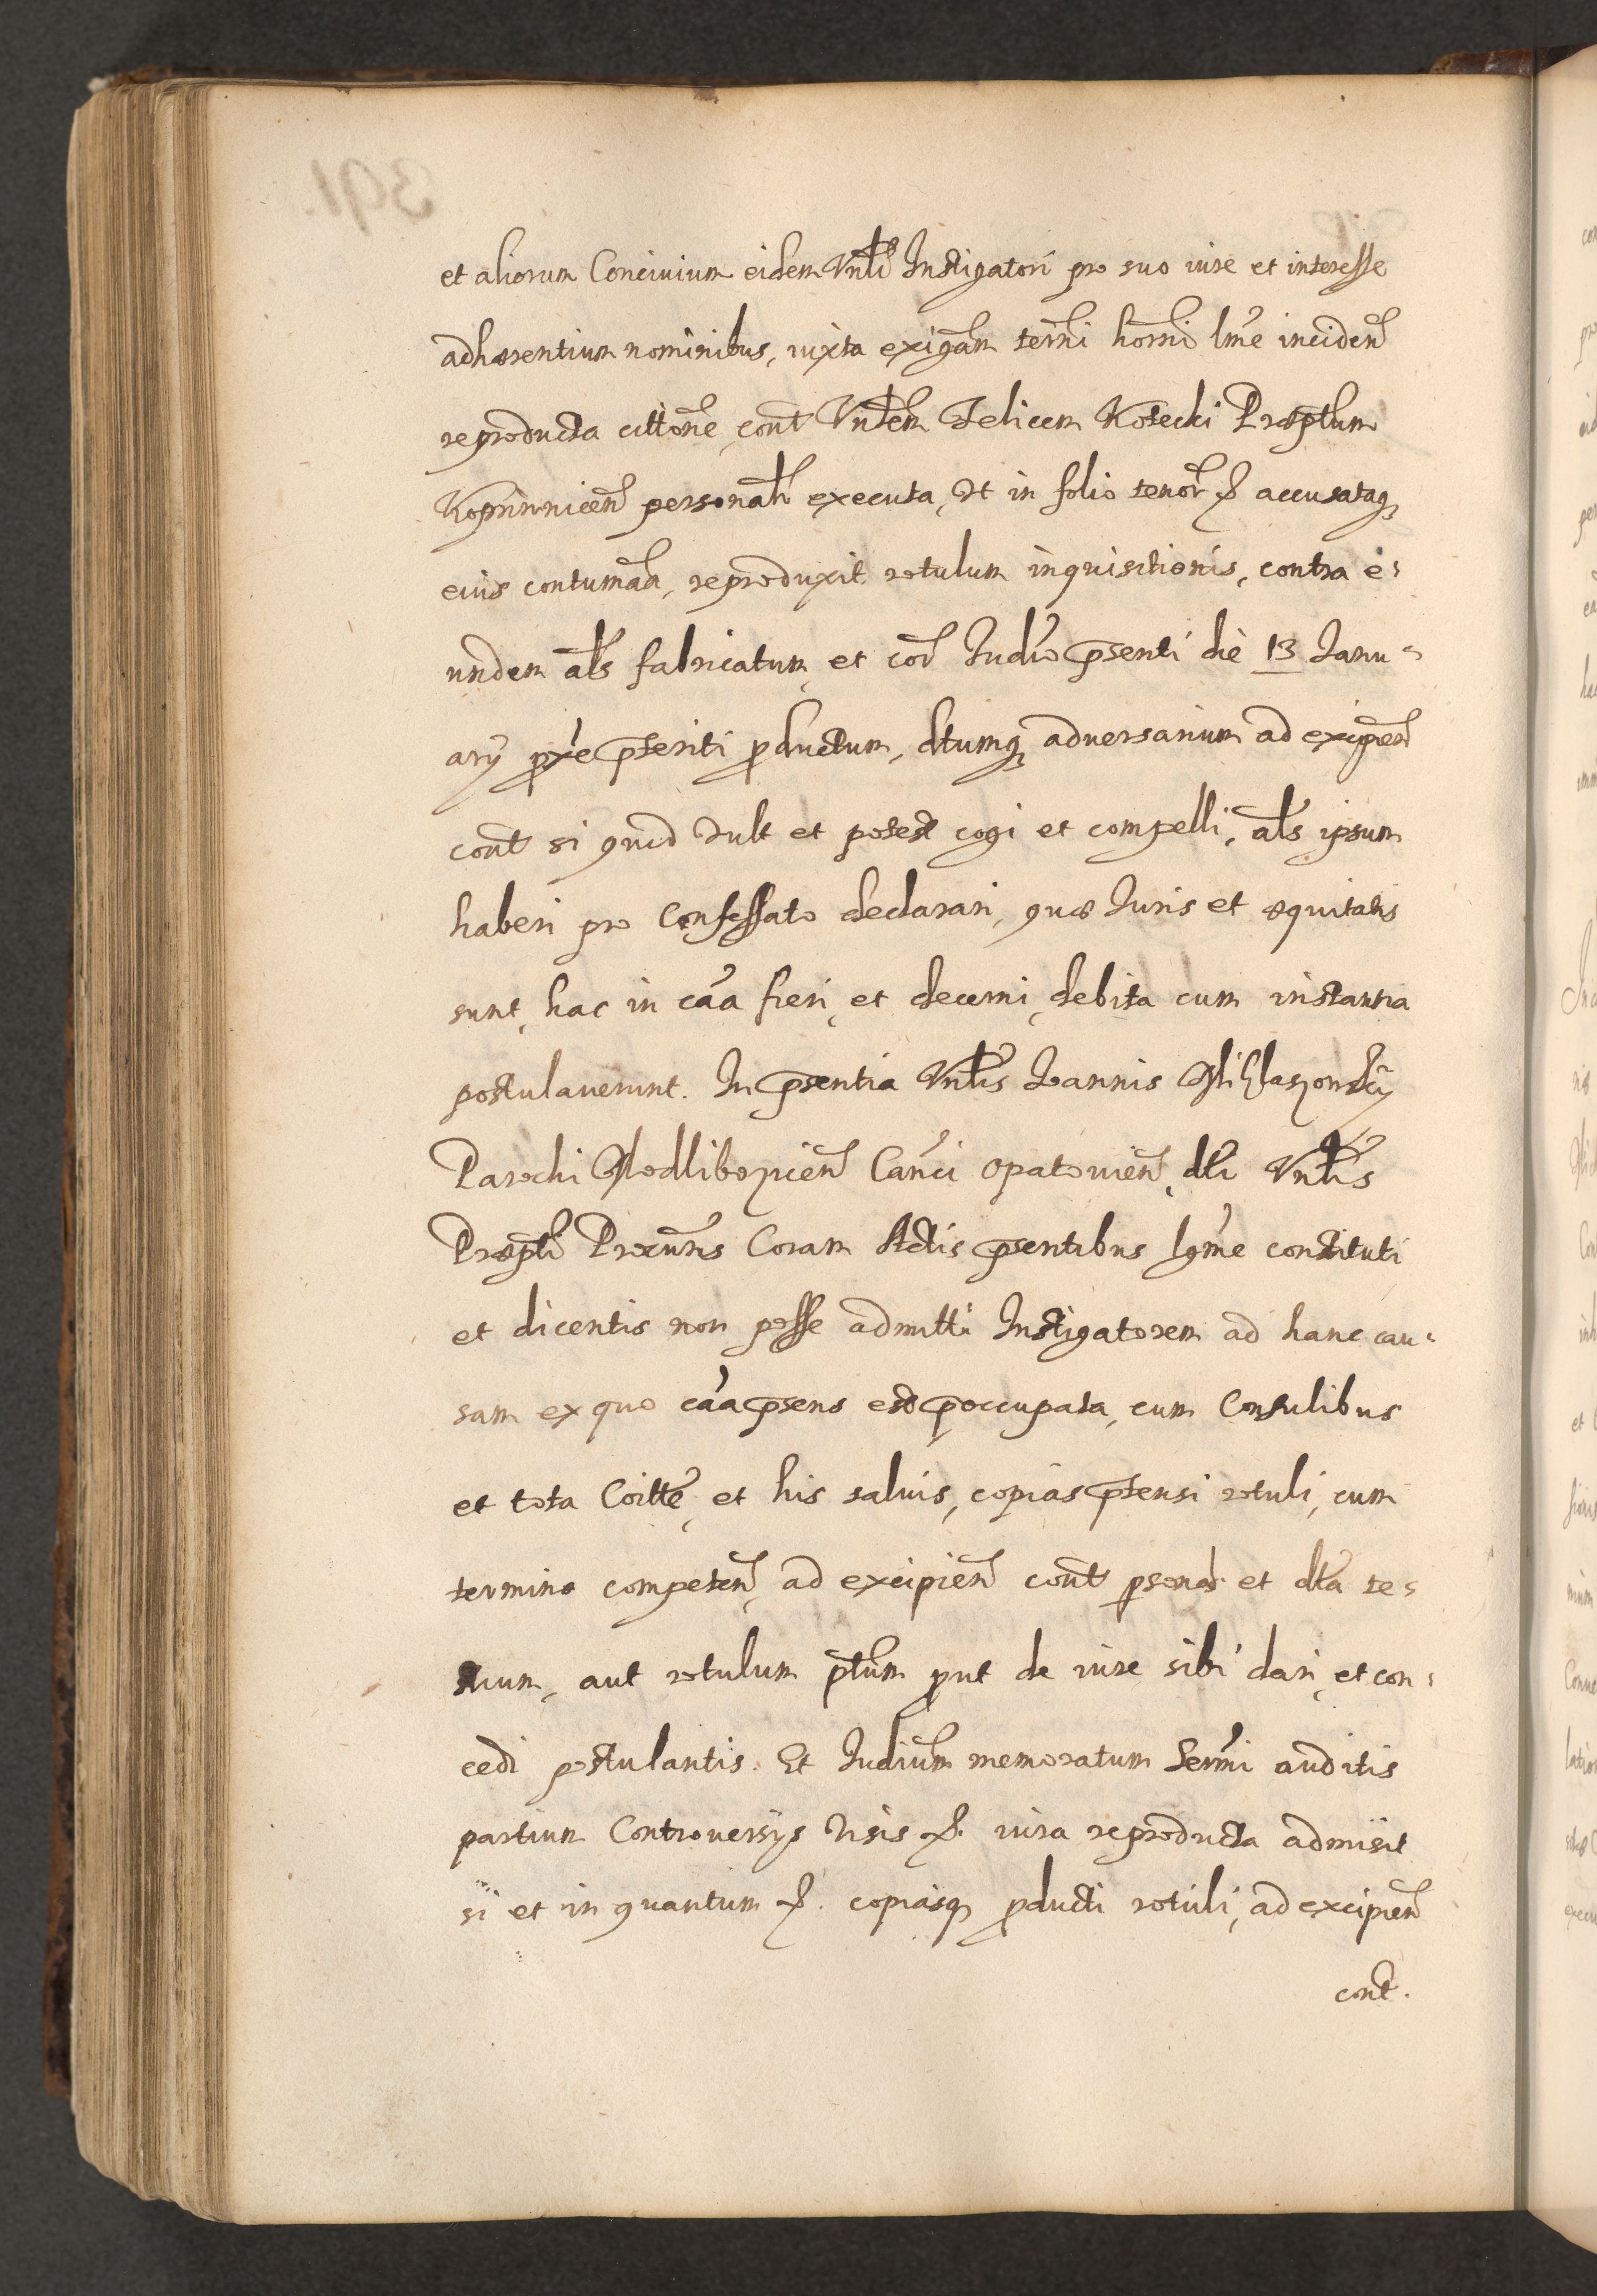 et aliorum Conciuium eidem Vnbli Instigatori pro suo iure et interesse
adhærentium nominibus, iuxta exigām termi horni lme inciden
reproducta cittone, cont Vnblem Felicem Kotecki Præptum
personalr executa, vt in folio tenor &. accusataq
eius contumāa, reproduxit rotulum inquisitionis, contra e-
undem als fabricatum, et cor Iudio pnsenti die 13 Ianu-
arÿ pxe pteriti pductum, dtumq aduersarium ad excipien
cont si quid vult et potest cogi et compelli, als ipsum
haberi pro Confessato declarari, quæ Iuris et æquitatis
sunt, hac in cāa fieri, et decerni, debita cum instantia
postulauerunt. In psentia Vnblis Ioannis
Parochi Modliborzicen Canci Opatouien, dti Vnblis
Præpti Procuris Coram Actis psentibus lgme constituti
et dicentis non posse admitti Instigatorem ad hanc cau-
sam ex quo cāa psens est poccupata, cum Consulibus
et tota Coitte, et his saluis, copias ptensi rotuli, cum
termino competen, ad excipien cont psonas et dta te-
stium, aut rotulum ptum put de iure sibi dari, et con-
cedi postulantis. Et Iudium memoratum Sermi auditis
partium Controuersÿs visis &. iura reproducta admisit
si et in quantum &. copiasq pducti rotuli, ad excipien
cont.